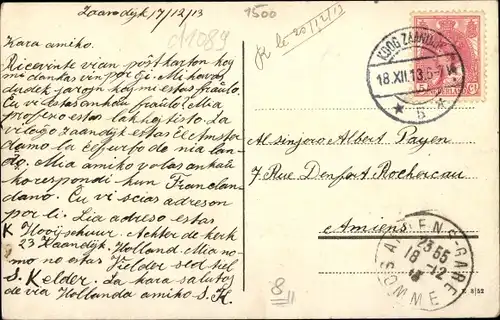 Zaandijk 17/12/13
1500
01089
R le 20/12/13
Kara amiko.
Ricevinte vian postkarton kaj
mi dankas vin por ĝi. Mi havas
dudek jarojn kaj mi estas fraŭlo.
Ĉu vi estas ankaŭ fraŭlo? Mia
profesio estas
vilaĝo Zaandijk estas
damo la ĉefurbo de nia lan-
do. Mia amiko volas ankaŭ
korespondi kun Franclan-
dano. Ĉu vi scias adreson
por li. Lia adreso estas
K Hooijschuur. Achter de kerk
23 Zaandijk. Holland. Mia no-
mo no estas Fielder sed tiel
S. Kelder. La kara salutos
de via Hollanda amiko S. K.
KOOG ZAANDIJK
18.XII.13.6-7 N
5
Al sinjoro Albert Payen
7 Rue Denfert Rochereau
Amiens
AMIENS-GARE
23 55
18-12
13
SOMME
8